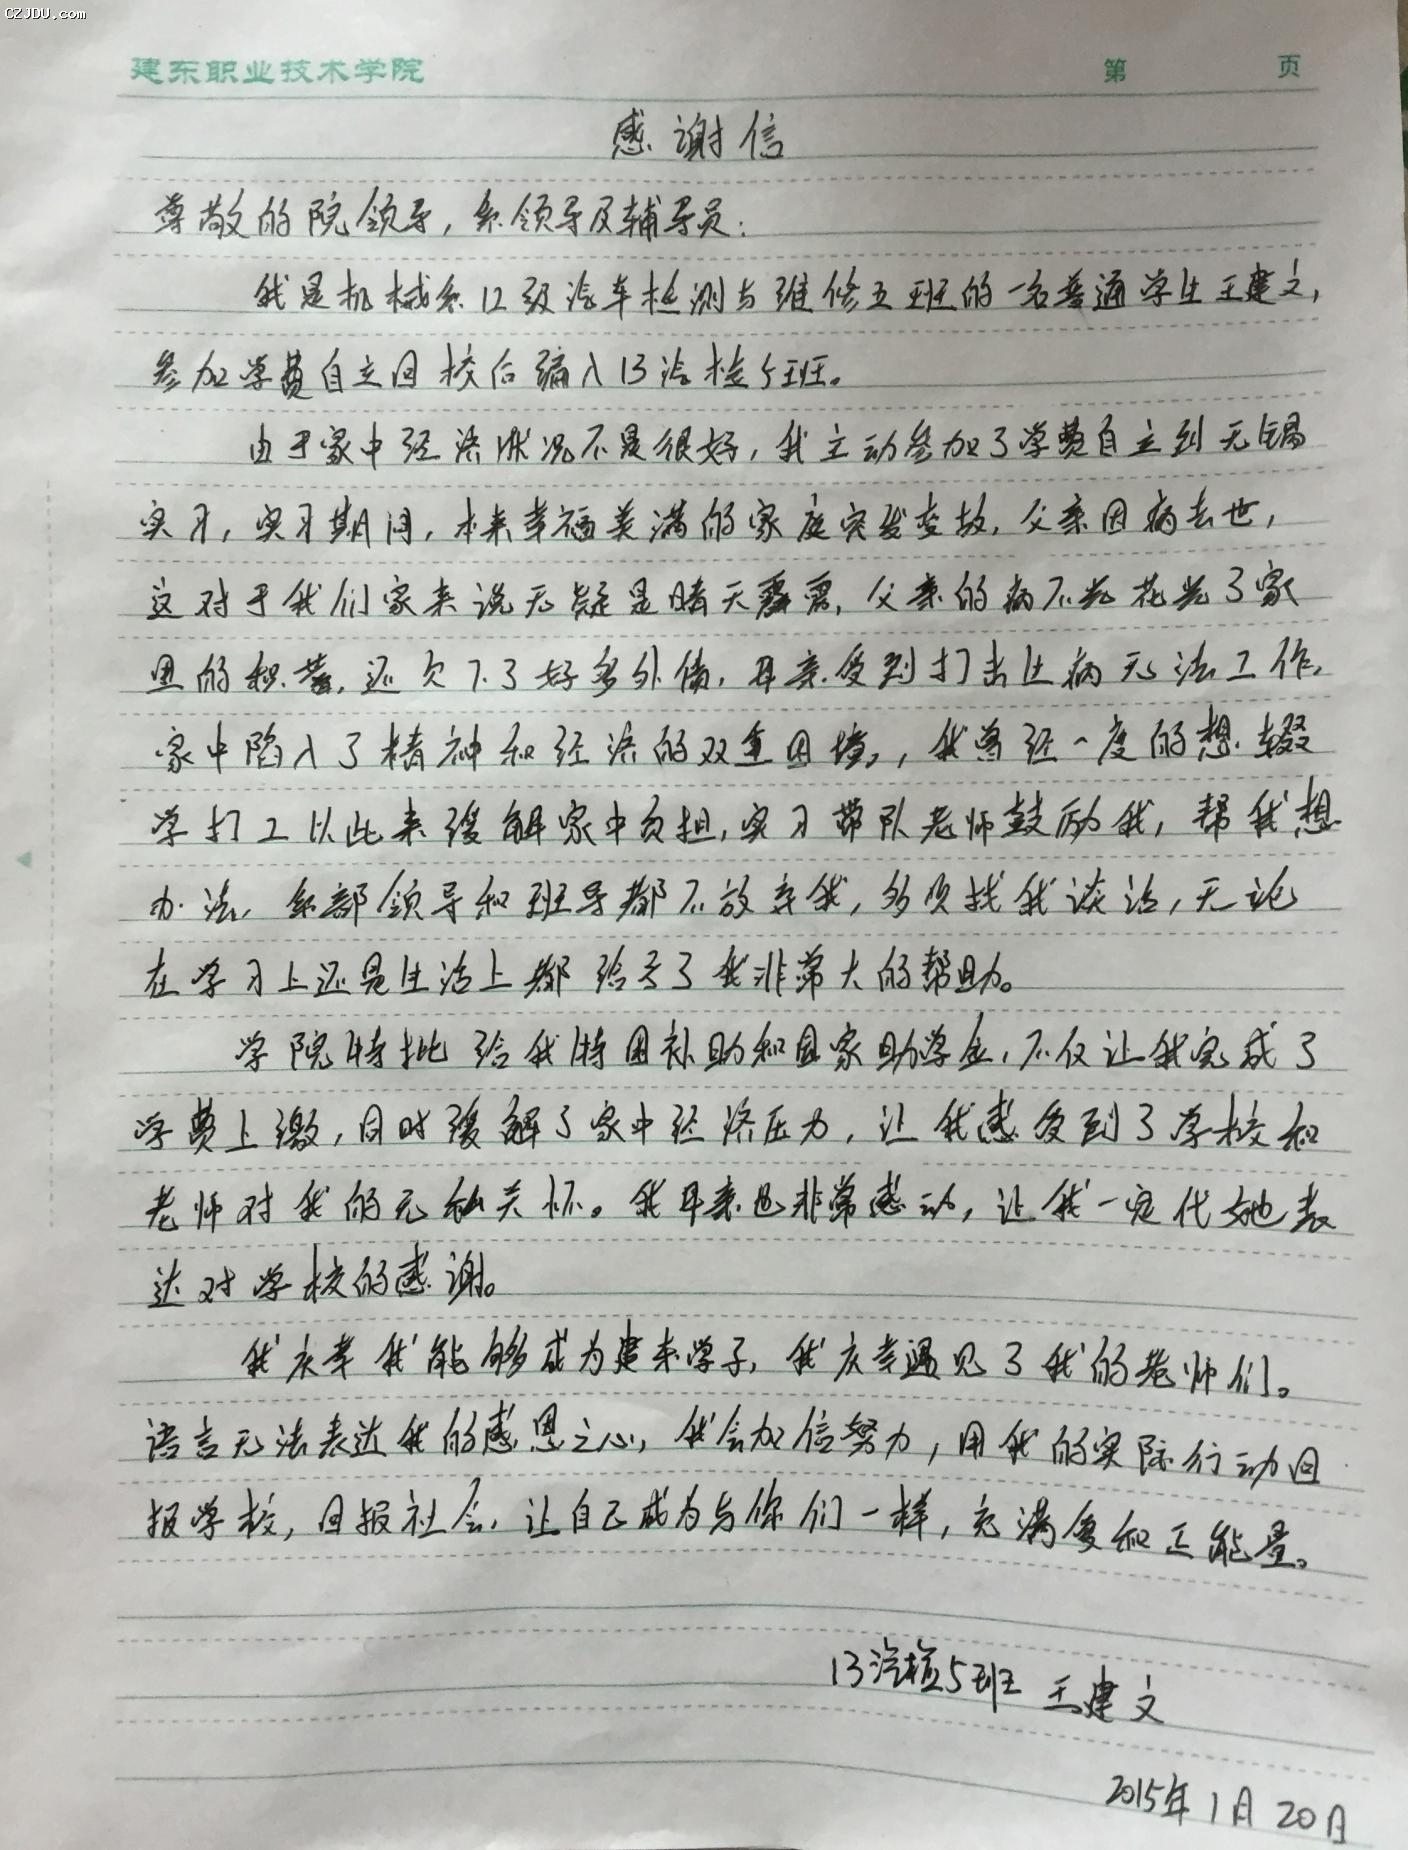 CZJDU.com
建东职业技术学院 第 页
感谢信
尊敬的院领导，系领导及辅导员：
我是机械系12级汽车检测与维修五班的一名普通学生王建文，
参加学费自立回校后编入13汽检5班。
由于家中经济状况不是很好，我主动参加了学费自立到无锡
实习，实习期间，本来幸福美满的家庭突发变故，父亲因病去世，
这对于我们家来说无疑是晴天霹雳，父亲的病不光花光了家
里的积蓄，还欠下了好多外债，母亲受到打击生病无法工作，
家中陷入了精神和经济的双重困境，，我曾经一度的想辍
学打工以此来缓解家中负担，实习带队老师鼓励我，帮我想
办法，系部领导和班导都不放弃我，多次找我谈话，无论
在学习上还是生活上都给予了我非常大的帮助。
学院特批给我特困补助和国家助学金，不仅让我完成了
学费上缴，同时缓解了家中经济压力，让我感受到了学校和
老师对我的无私关怀。我母亲也非常感动，让我一定代她表
达对学校的感谢。
我庆幸我能够成为建东学子，我庆幸遇见了我的老师们。
语言无法表达我的感恩之心，我会加信努力，用我的实际行动回
报学校，回报社会，让自己成为与你们一样，充满爱和正能量。
13汽检5班 王建文
2015年1月20日